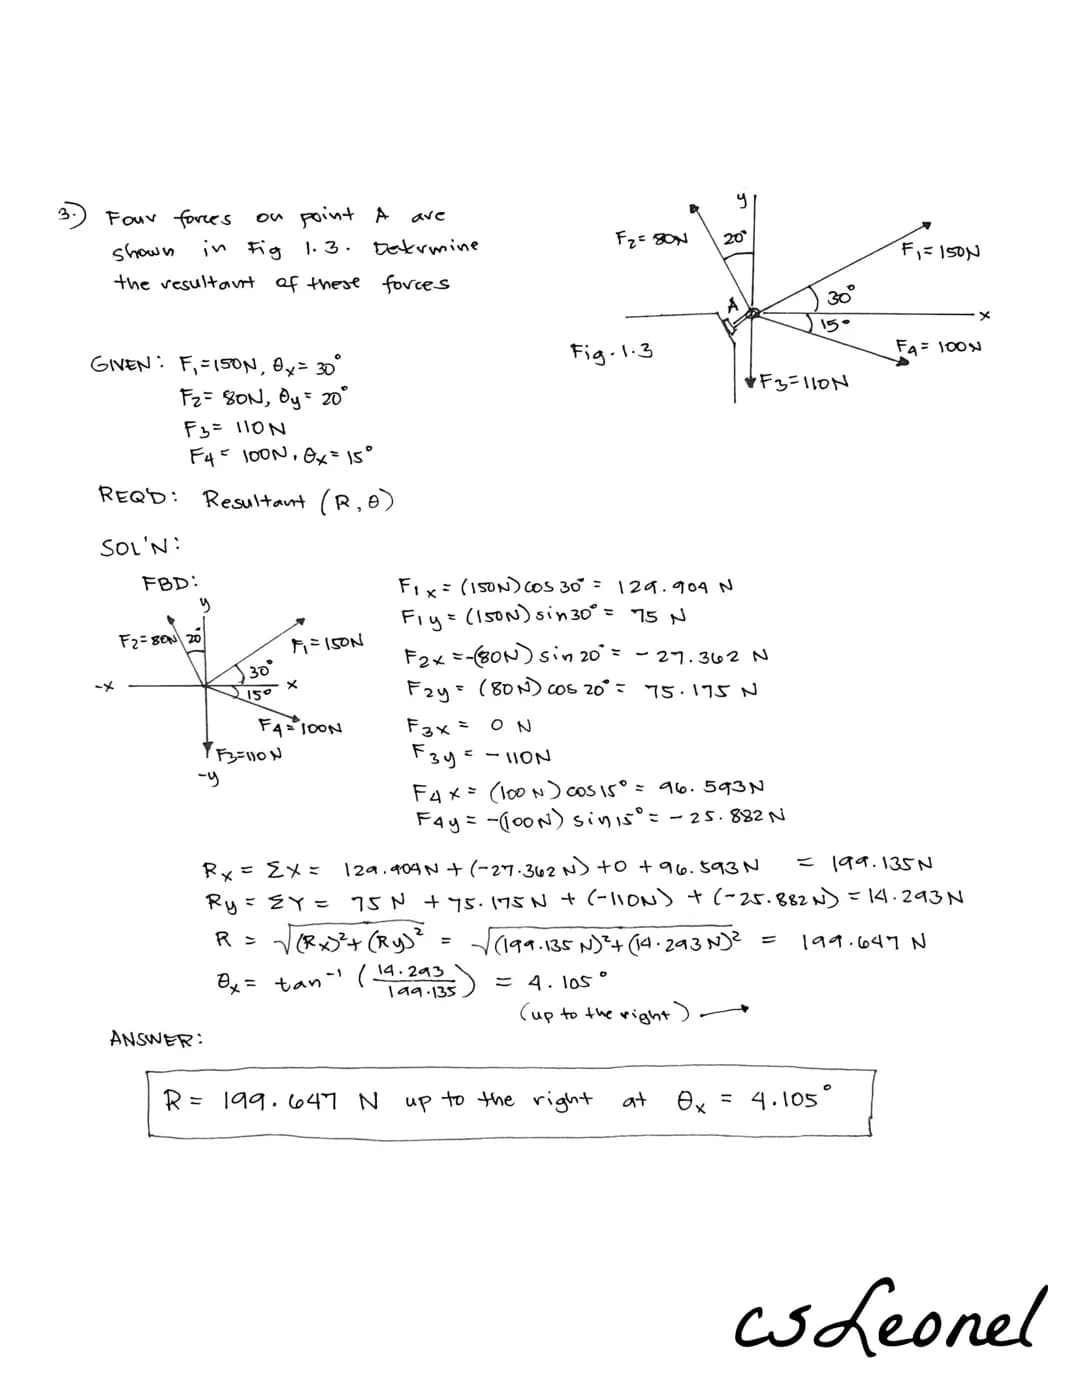 3.) Four forces on point A are
shown in Fig 1.3. Determine
the resultant of these forces
y
F₂= 80N
20°
F₁= 150N
A
30°
15°
x
Fig. 1.3
F₄= 100N
F₃=110N
GIVEN: F₁=150N, θx= 30°
F₂= 80N, θy= 20°
F₃= 110N
F₄= 100N, θx= 15°
REQ'D: Resultant (R, θ)
SOL'N:
FBD:
y
F₂=80N 20°
F₁=150N
30°
-x
15° x
F₄=100N
F₃=110N
-y
F₁x= (150N)cos 30° = 129.904 N
F₁y= (150N)sin30° = 75 N
F₂x=-(80N) sin 20° = - 27.362 N
F₂y= (80N) cos 20° = 75.175 N
F₃x= 0 N
F₃y= -110N
F₄x= (100N)cos15° = 96.593N
F₄y= -(100N) sin15° = - 25.882 N
Rx= ΣX= 129.904N + (-27.362 N) +0 +96.593N = 199.135N
Ry= ΣY= 75N + 75.175N + (-110N) + (-25.882N) = 14.293N
R = √(Rx)²+(Ry)² = √(199.135 N)²+(14.293N)² = 199.647 N
θx= tan⁻¹ (14.293/199.135) = 4.105°
(up to the right) →
ANSWER:
R= 199.647 N up to the right at θx = 4.105°
csLeonel